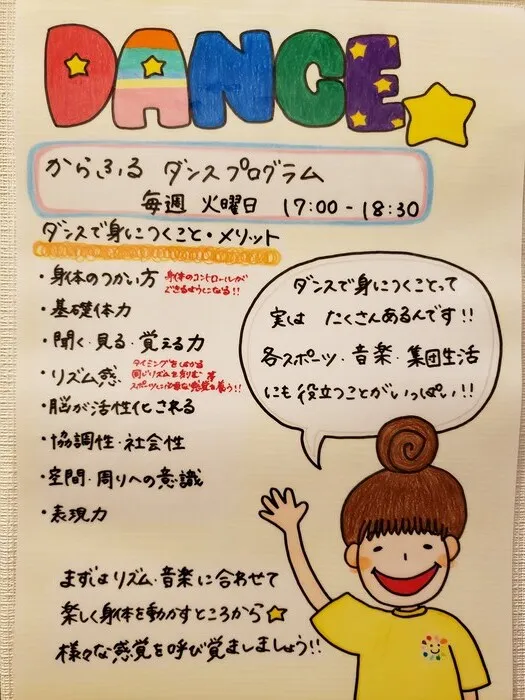 DANCE
からふる ダンスプログラム
毎週 火曜日 17:00-18:30
ダンスで身につくこと・メリット
・身体のつかい方 身体のコントロールが
できるようになる!!
・基礎体力
・聞く・見る・覚える力
・リズム感 タイミングをはかる
同じリズムを刻む 等
スポーツに必要な感覚を養う!!
・脳が活性化される
・協調性・社会性
・空間・周りへの意識
・表現力
ダンスで身につくことって
実は たくさんあるんです!!
各スポーツ・音楽・集団生活
にも役立つことがいっぱい!!
まずはリズム・音楽に合わせて
楽しく身体を動かすところから
様々な感覚を呼び覚ましましょう!!